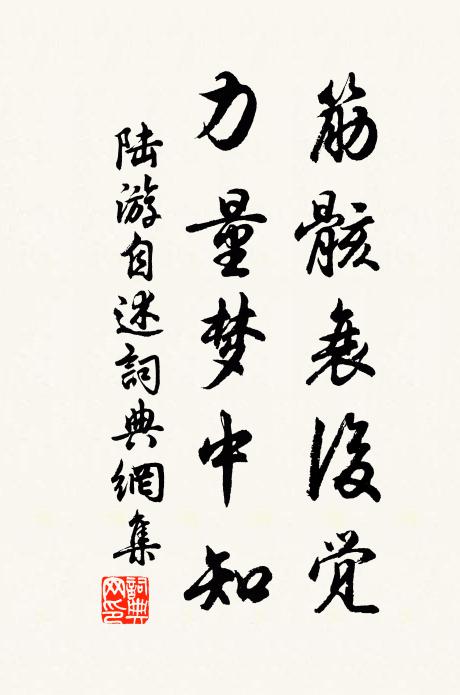 筋骸衰後觉
力量梦中知
陆游自述詞典網集
詞典网印